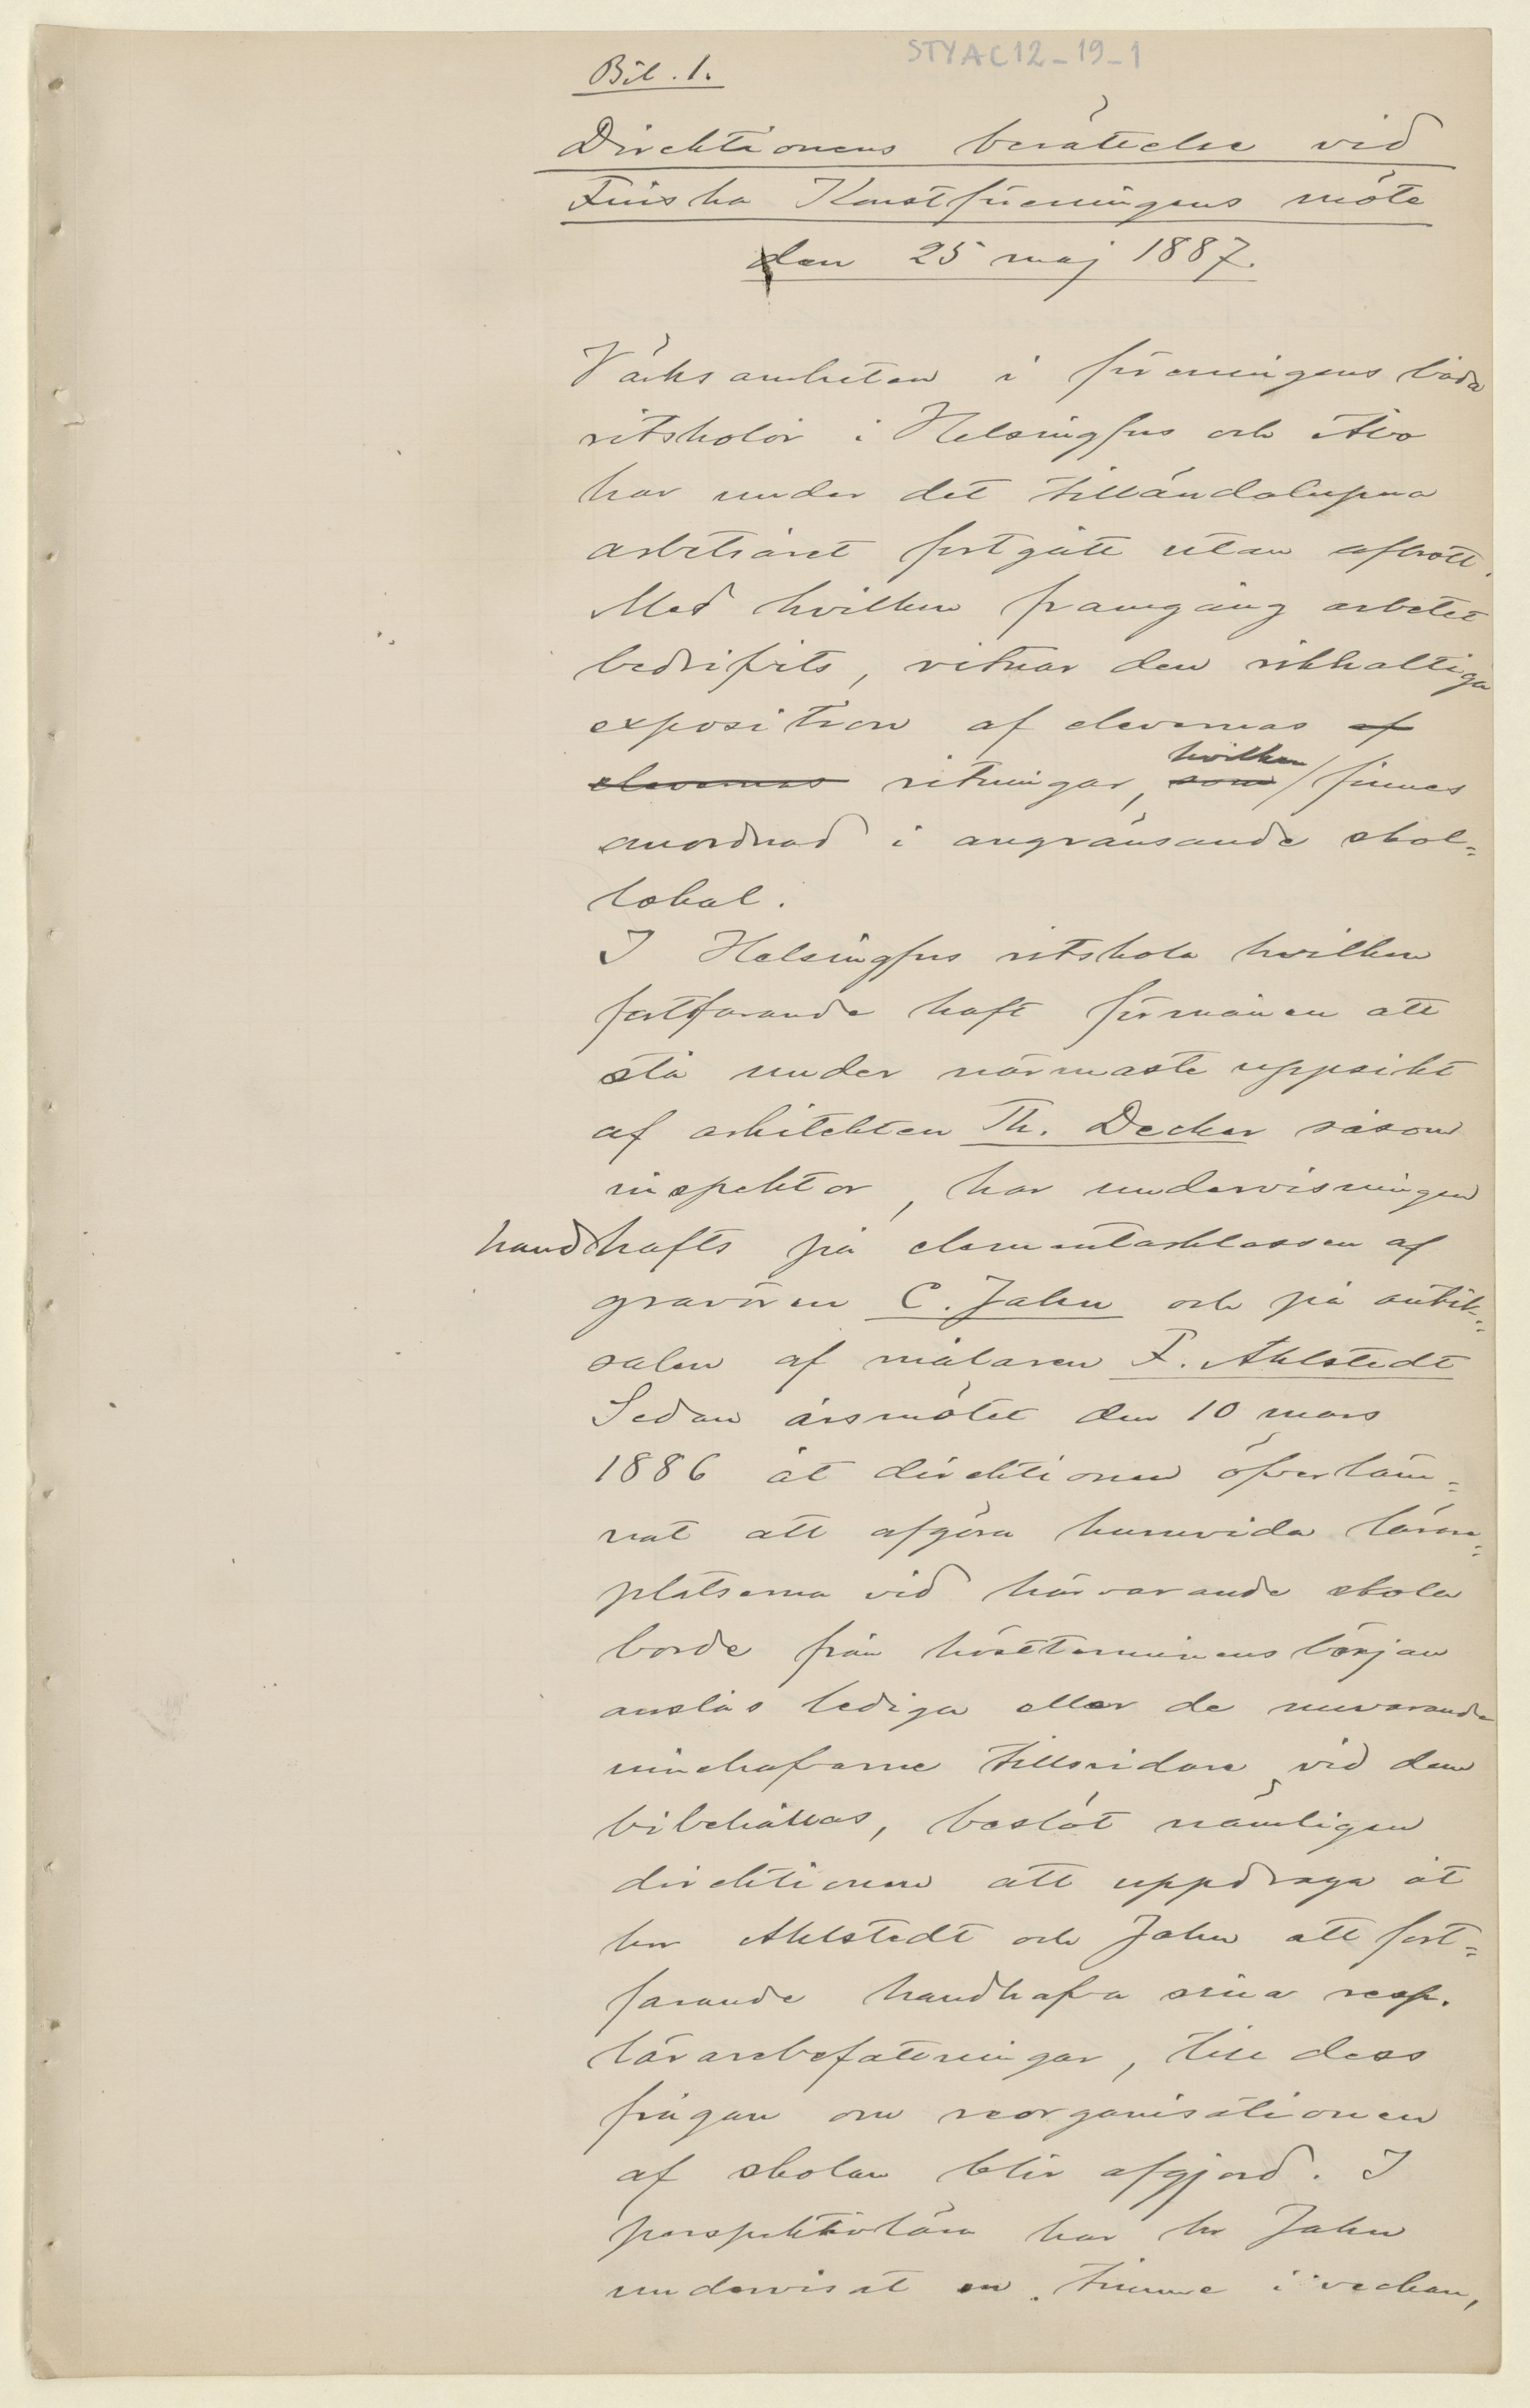 STYAC12-19-1
Bil. 1.
Direktionens berättelse vid
Finska Konstföreningens möte
den 25 maj 1887.
Värksamheten i föreningens båda
ritskolor i Helsingfors och Åbo
har under det tilländalupna
arbetsåret fortgått utan afbrott.
Med hvilken framgång arbetet
bedrifvits, vitnar den rikhaltiga
exposition af elevernas af
elevernas ritningar, som hvilken finnes
anordnad i angränsande skol=
lokal.
I Helsingfors ritskola hvilken
fortfarande haft förmånen att
stå under närmaste uppsikt
af arkitekten Th. Decker såsom
inspektor, har undervisningen
handhafts på elementarklassen af
gravören C. Jahn och på antik=
salen af målaren F. Ahlstedt
Sedan årsmötet den 10 mars
1886 åt direktionen öfverläm=
nat att afgöra huruvida lärare=
platserna vid härvarande skola
borde från höstterminens början
anslås lediga eller de nuvarande
innehafvarne tillsvidare vid dem
bibehållas, beslöt nämligen
direktionen att uppdraga åt
hrr Ahlstedt och Jahn att fort=
farande handhafva sina resp.
lärarebefattningar, till dess
frågan om reorganisationen
af skolan blir afgjord. I
perspektivlära har hr Jahn
undervisat en timme i veckan,